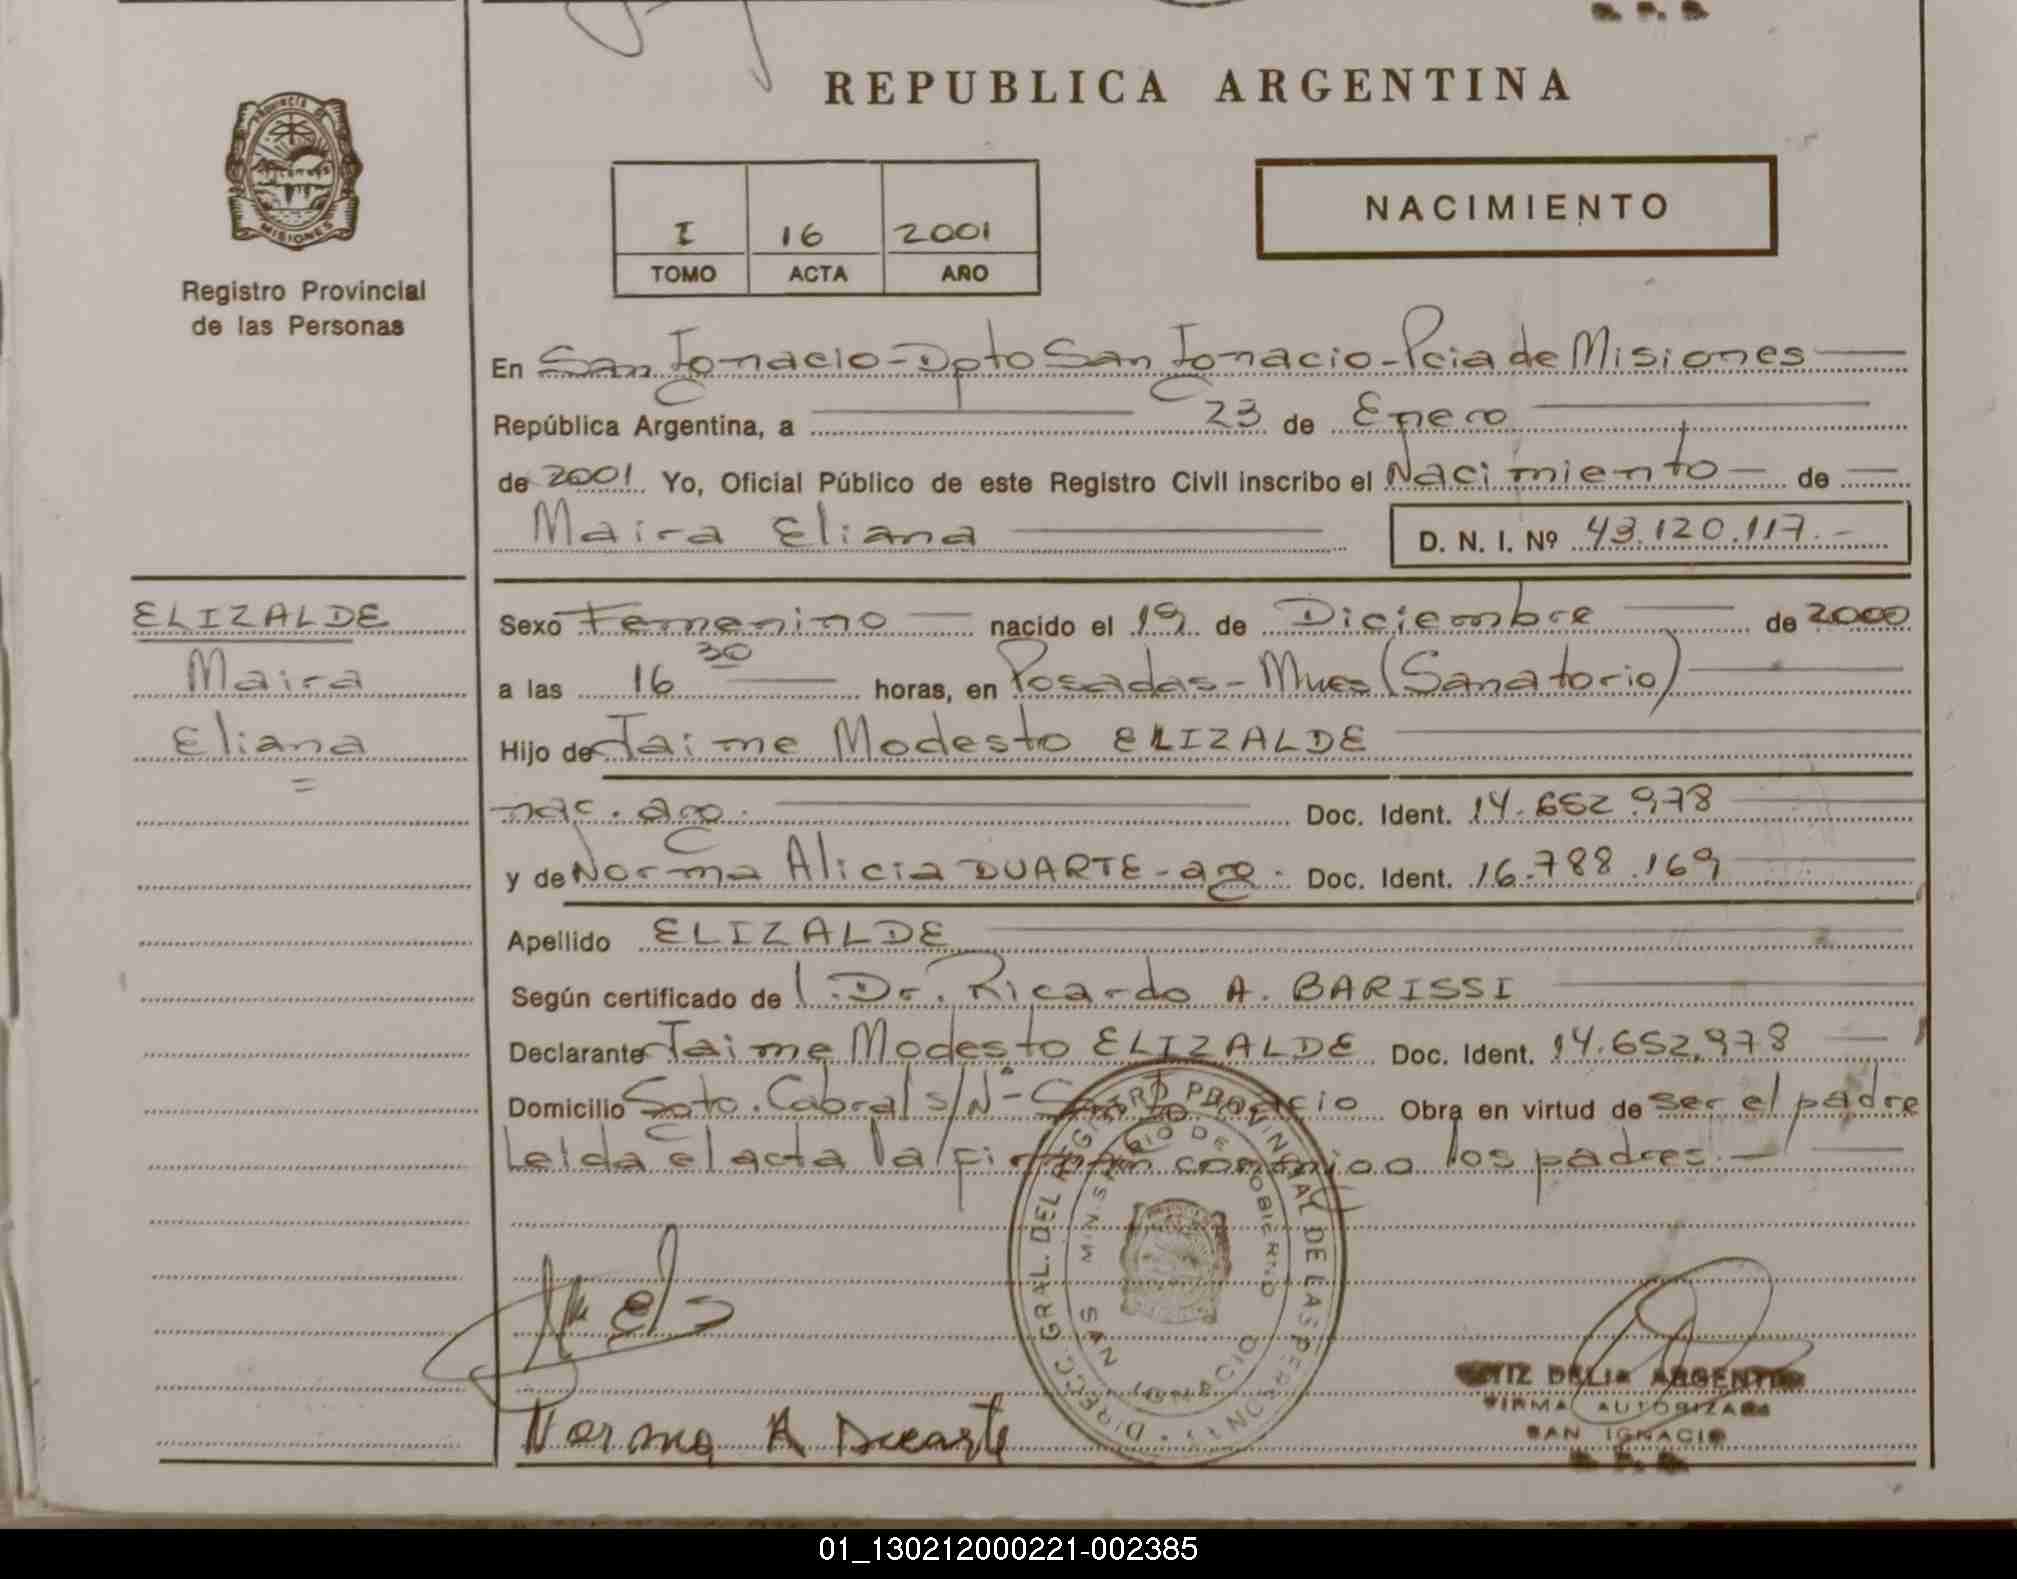 REPUBLICA ARGENTINA
PROVINCIA DE
MISIONES
Registro Provincial
de las Personas
I 16 2001
TOMO ACTA AÑO
NACIMIENTO
En San Ignacio - Dpto San Ignacio - Pcia de Misiones
República Argentina, a 23 de Enero
de 2001. Yo, Oficial Público de este Registro Civil inscribo el Nacimiento de
Maira Eliana D. N. I. Nº 43.120.117.-
ELIZALDE
Maira
Eliana
Sexo Femenino nacido el 19 de Diciembre de 2000
a las 16 30 horas, en Posadas - Mnes (Sanatorio)
Hijo de Jaime Modesto ELIZALDE
nac. arg. Doc. Ident. 14.652.978
y de Norma Alicia DUARTE - arg. Doc. Ident. 16.788.169
Apellido ELIZALDE
Según certificado de l. Dr. Ricardo A. BARISSI
Declarante Jaime Modesto ELIZALDE Doc. Ident. 14.652.978
Domicilio Sgto. Cabral s/Nº - San Ignacio Obra en virtud de ser el padre
Leída el acta la firman conmigo los padres. -
DIRECC. GRAL. DEL REGISTRO PROVINCIAL DE LAS PERSONAS
MINISTERIO DE GOBIERNO
SAN IGNACIO
Norma A Duarte
DELIA ARGENTINA
FIRMA AUTORIZADA
SAN IGNACIO
01_130212000221-002385